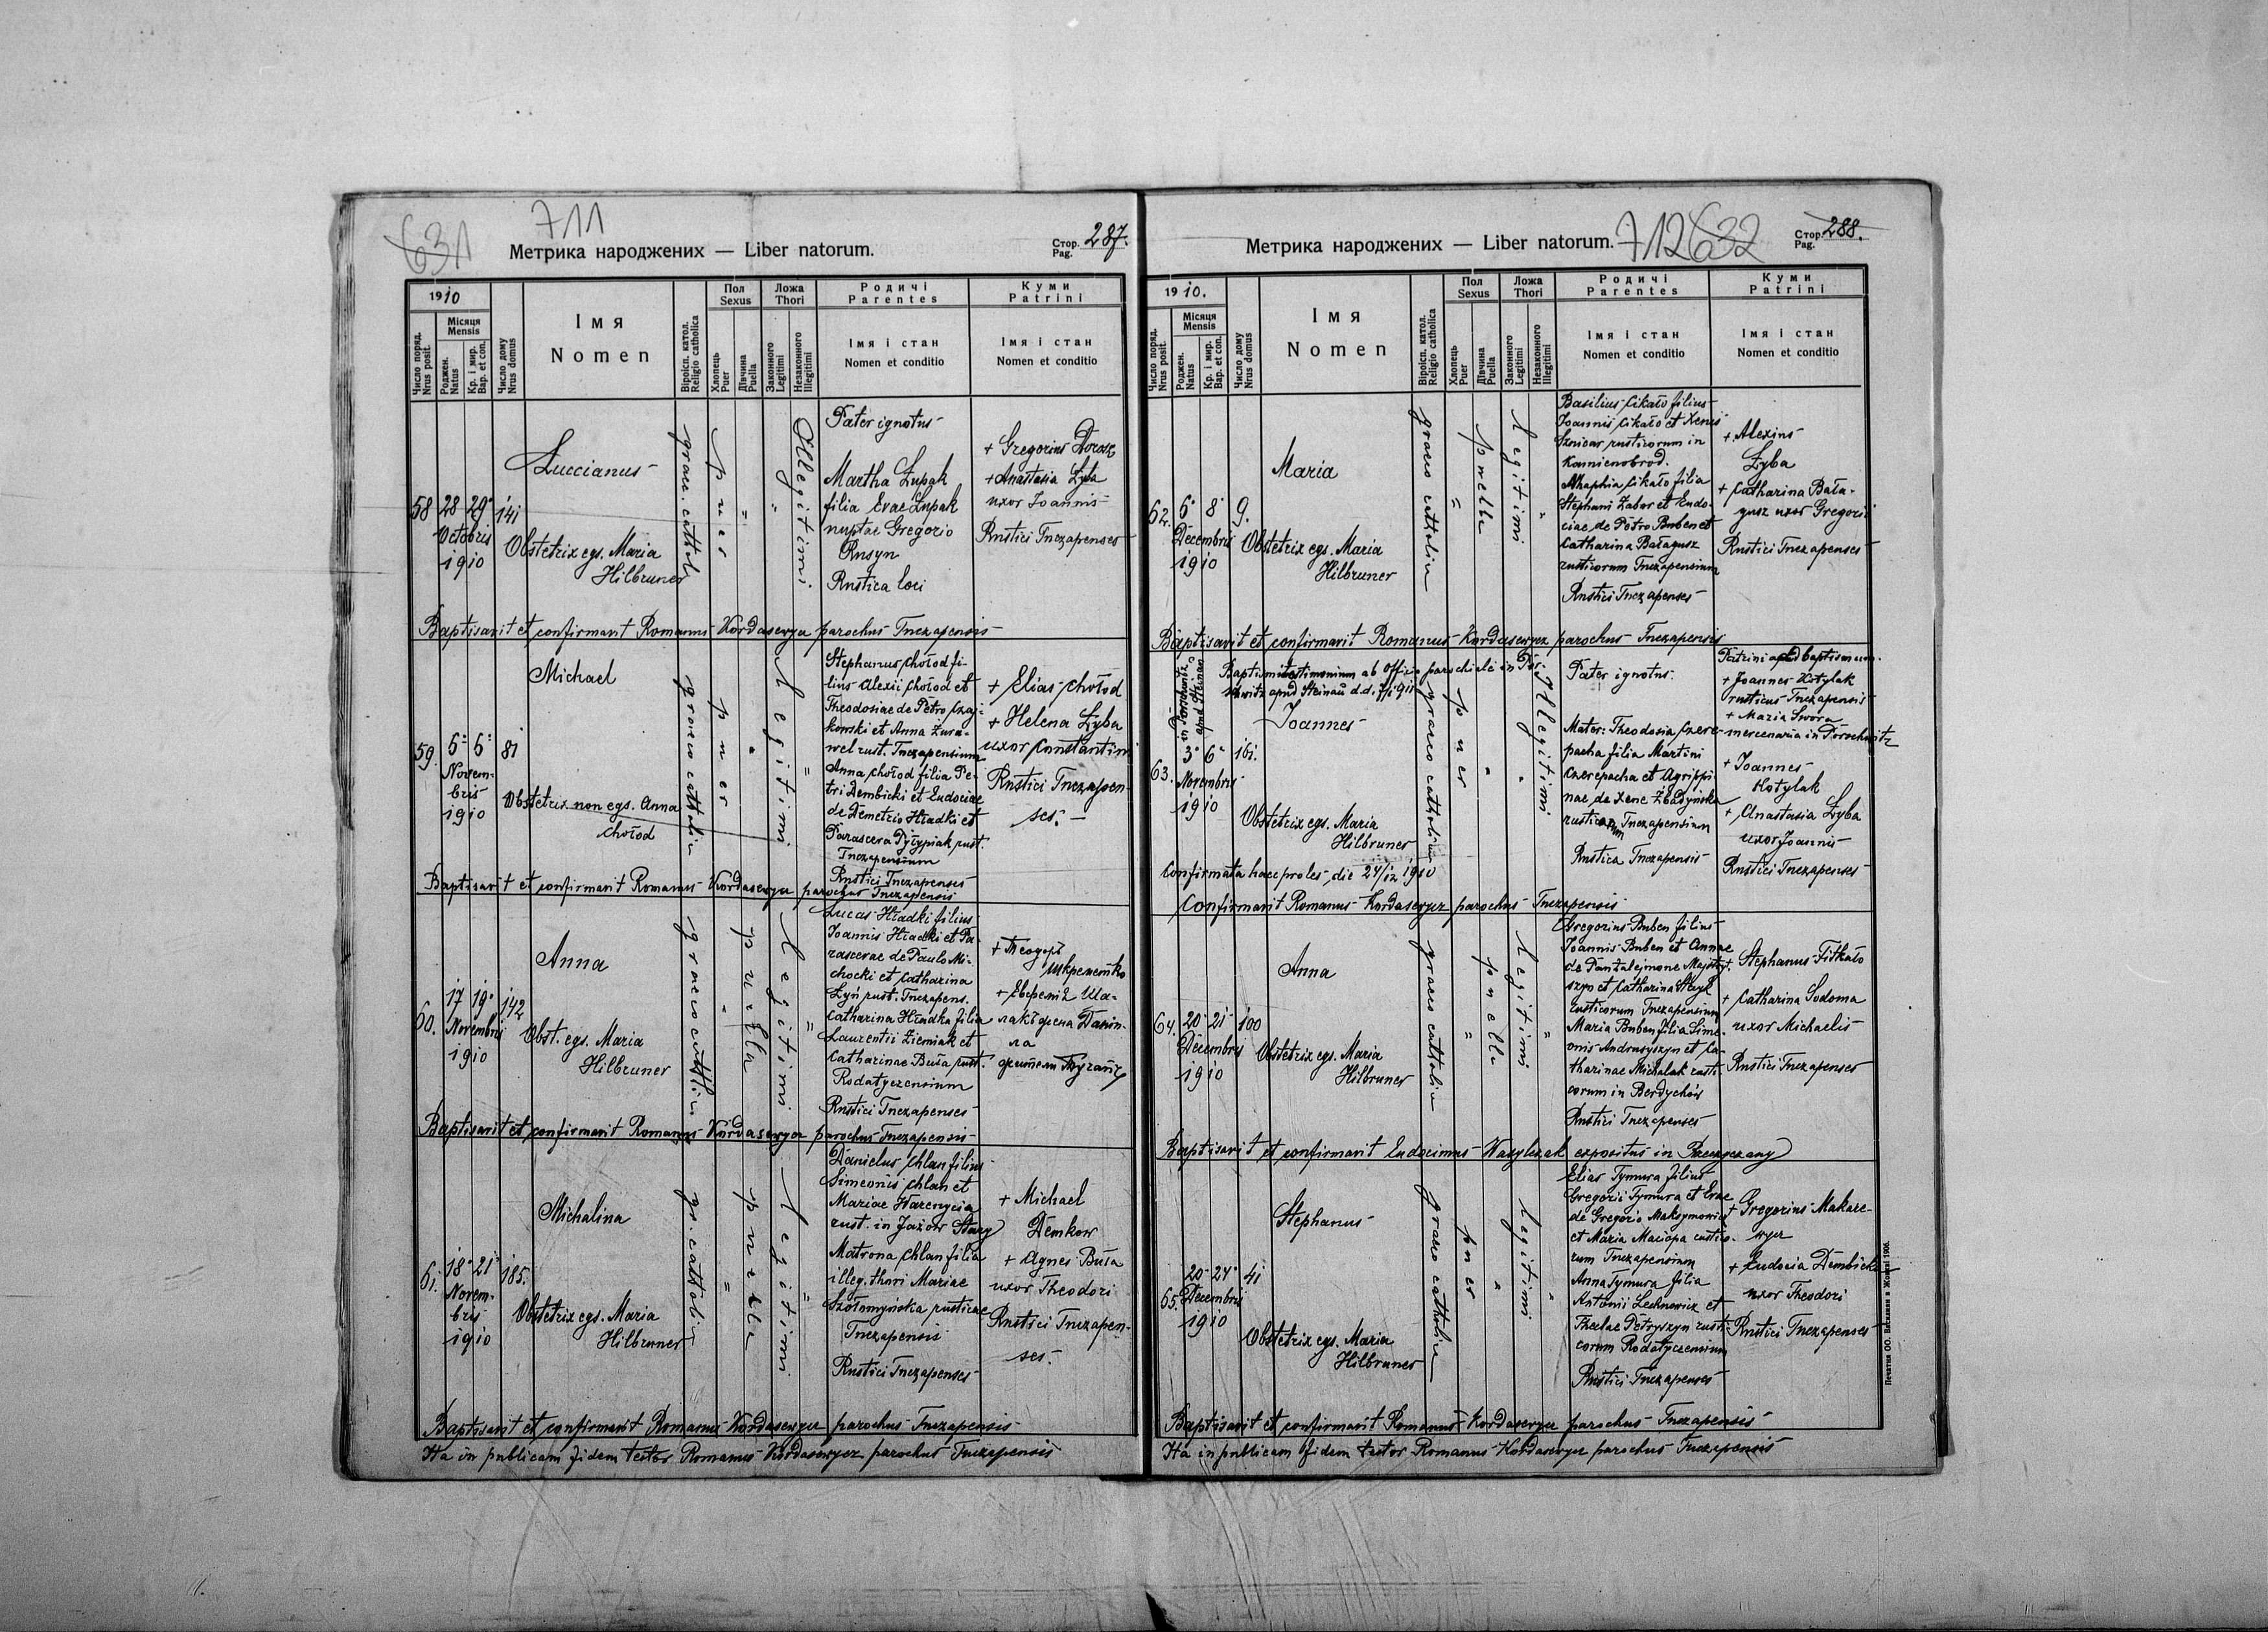 631
711
Метрика народжених — Liber natorum.
Стор. 287.
Pag.
1910
Місяця
Mensis
Число поряд.
Nrus posit.
Роджен.
Natus
Кр. і мир.
Bap. et con.
Число дому
Nrus domus
Імя
Nomen
Віроісп. катол.
Religio catholica
Пол
Sexus
Хлопець
Puer
Дївчина
Puella
Ложа
Thori
Законного
Legitimi
Незаконного
Illegitimi
Родичі
Parentes
Імя і стан
Nomen et conditio
Куми
Patrini
Імя і стан
Nomen et conditio
58 28 29 141
Octobris
1910
Luccianus
Obstetrix egs. Maria
Hilbruner
graec. cathol.
puer
Illegitimi
Pater ignotus
Martha Łupak
filia Evae Łupak
nuptae Gregorio
Rusyn
Rustica loci
+ Gregorius Dorosz
+ Anastasia Zyba
uxor Joannis
Rustici Tuczapenses
Baptisavit et confirmavit Romanus Kordasewycz parochus Tuczapensis
59. 6 6 81
Novem-
bris
1910
Michael
Obstetrix non egs. Anna
Chołod
graeco catholica
puer
Legitimi
Stephanus Chołod fi-
lius Alexii Chołod et
Theodosiae de Petro Czaj-
kowski et Anna Żura-
wel rust. Tuczapensium
Anna Chołod filia Pe-
tri Dembicki et Eudociae
de Demetrio Hładki et
Parascera Pyłypiak rust.
Tuczapensium
Rustici Tuczapenses
+ Elias Chołod
+ Helena Zyba
uxor Constantini
Rustici Tuczapen-
ses.
Baptisavit et confirmavit Romanus Kordasewycz parochus Tuczapensis
60. 17 19 142
Novembris
1910
Anna
Obst. egs. Maria
Hilbruner
graeco catholica
puella
Legitimi
Lucas Hładki filius
Joannis Hładki et Pa-
rascerae de Paulo Mi-
chocki et Catharina
Łyń rust. Tuczapens.
Catharina Hładka filia
Laurentii Ziemiak et
Catharinae Buła rust.
Rodatyczensium
Rustici Tuczapenses
+ Теодоръ
+
Baptisavit et confirmavit Romanus Kordasewycz parochus Tuczapensis
61. 18 21 185.
Novem-
bris
1910
Michalina
Obstetrix egs. Maria
Hilbruner
gr. catholica
puella
Legitimi
Danielus Chlan filius
Simeonis Chlan et
Mariae Harenycia
rust. in Jazow Stary
Matrona Chlan filia
illeg. thori Mariae
Szołomyńska rusticae
Tuczapensis
Rustici Tuczapenses
+ Michael
Demkow
+ Agnes Buła
uxor Theodori
Rustici Tuczapen-
ses.
Baptisavit et confirmavit Romanus Kordasewycz parochus Tuczapensis
Ita in publicam fidem testor Romanus Kordasewycz parochus Tuczapensis
Метрика народжених — Liber natorum.
712 632
Стор. 288.
Pag.
1910.
Місяця
Mensis
Число поряд.
Nrus posit.
Роджен.
Natus
Кр. і мир.
Bap. et con.
Число дому
Nrus domus
Імя
Nomen
Віроісп. катол.
Religio catholica
Пол
Sexus
Хлопець
Puer
Дївчина
Puella
Ложа
Thori
Законного
Legitimi
Незаконного
Illegitimi
Родичі
Parentes
Імя і стан
Nomen et conditio
Куми
Patrini
Імя і стан
Nomen et conditio
62. 6 8 9.
Decembris
1910
Maria
Obstetrix egs. Maria
Hilbruner
graeco catholica
puella
Legitimi
Basilius Cikało filius
Joannis Cikało et Xenis
rusticorum in
Kamienobrod.
Cikało filia
Stephani Zabor et Eudo-
ciae de Petro Buben et
Catharina Bałagusz
rusticorum Tuczapensium
Rustici Tuczapenses
+ Alexius
Zyba
+ Catharina Bała-
gusz uxor Gregorii
Rustici Tuczapenses
Baptisavit et confirmavit Romanus Kordasewycz parochus Tuczapensis
in Porschwitz
apud Steinau
Baptismi testimonium ab Officio parochiali in Por-
schwitz apud Steinau d.d.
63. 3 6 161.
Novembris
1910
Joannes
Obstetrix egs. Maria
Hilbruner
graeco catholica
puer
Illegitimi
Pater ignotus.
Mater: Theodosia Czere-
pacha filia Martini
Czerepacha et Agrippi-
nae de Xenc
rusticorum Tuczapensium
Rustica Tuczapensis
Patrini apud baptismum.
+ Joannes Kotylak
rusticus Tuczapensis
+ Maria Swora
mercenaria in Porschwitz
+ Joannes
Kotylak
+ Anastasia Zyba
uxor Joannis
Rustici Tuczapenses
Confirmata haec proles die 24/12 1910
Confirmavit Romanus Kordasewycz parochus Tuczapensis
64. 20 21 100
Decembris
1910
Anna
Obstetrix egs. Maria
Hilbruner
graeco catholica
puella
Legitimi
Gregorius Buben filius
Joannis Buben et Annae
de Pantalejmone Majstry-
szyn et Catharina
rusticorum Tuczapensium
Maria Buben filia Sime-
onis Andrusyszyn et Ca-
tharinae Michalak rusti-
corum in Berdychów
Rustici Tuczapenses
+ Stephanus Fitkało
+ Catharina Sodoma
uxor Michaelis
Rustici Tuczapenses
Baptisavit et confirmavit Eudocimus Wasylczak expositus in
65. 20 24 41
Decembris
1910
Stephanus
Obstetrix egs. Maria
Hilbruner
graeco catholica
puer
Legitimi
Elias Tymura filius
Gregorii Tymura et Evae
de Gregorio Maksymowicz
et Maria Maciopa rustico-
rum Tuczapensium
Anna Tymura filia
Antonii Lechnowicz et
Theclae Petryszyn rusti-
corum Rodatyczensium
Rustici Tuczapenses
+ Gregorius Makare-
wycz
+ Eudocia Dembicka
uxor Theodori
Rustici Tuczapenses
Baptisavit et confirmavit Romanus Kordasewycz parochus Tuczapensis
Ita in publicam fidem testor Romanus Kordasewycz parochus Tuczapensis
Печатня ОО. Василиян в Жовкві 1906.